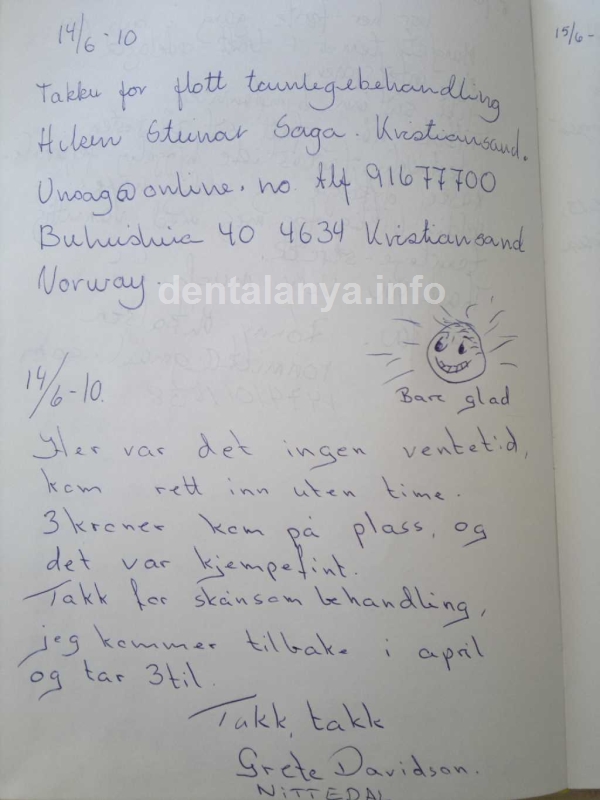 14/6-10
15/6-
Takku for flott tannlegebehandling
Steinar Saga. Kristiansand.
Unsag@online.no tlf 91677700
40 4634 Kristiansand
Norway.
dentalanya.info
Bare glad
14/6-10.
Her var det ingen ventetid,
kom rett inn uten time.
3 kroner kom på plass, og
det var kjempefint.
Takk for skånsom behandling,
jeg kommer tilbake i april
og tar 3 til.
Takk, takk
Grete Davidson.
NITTEDAL